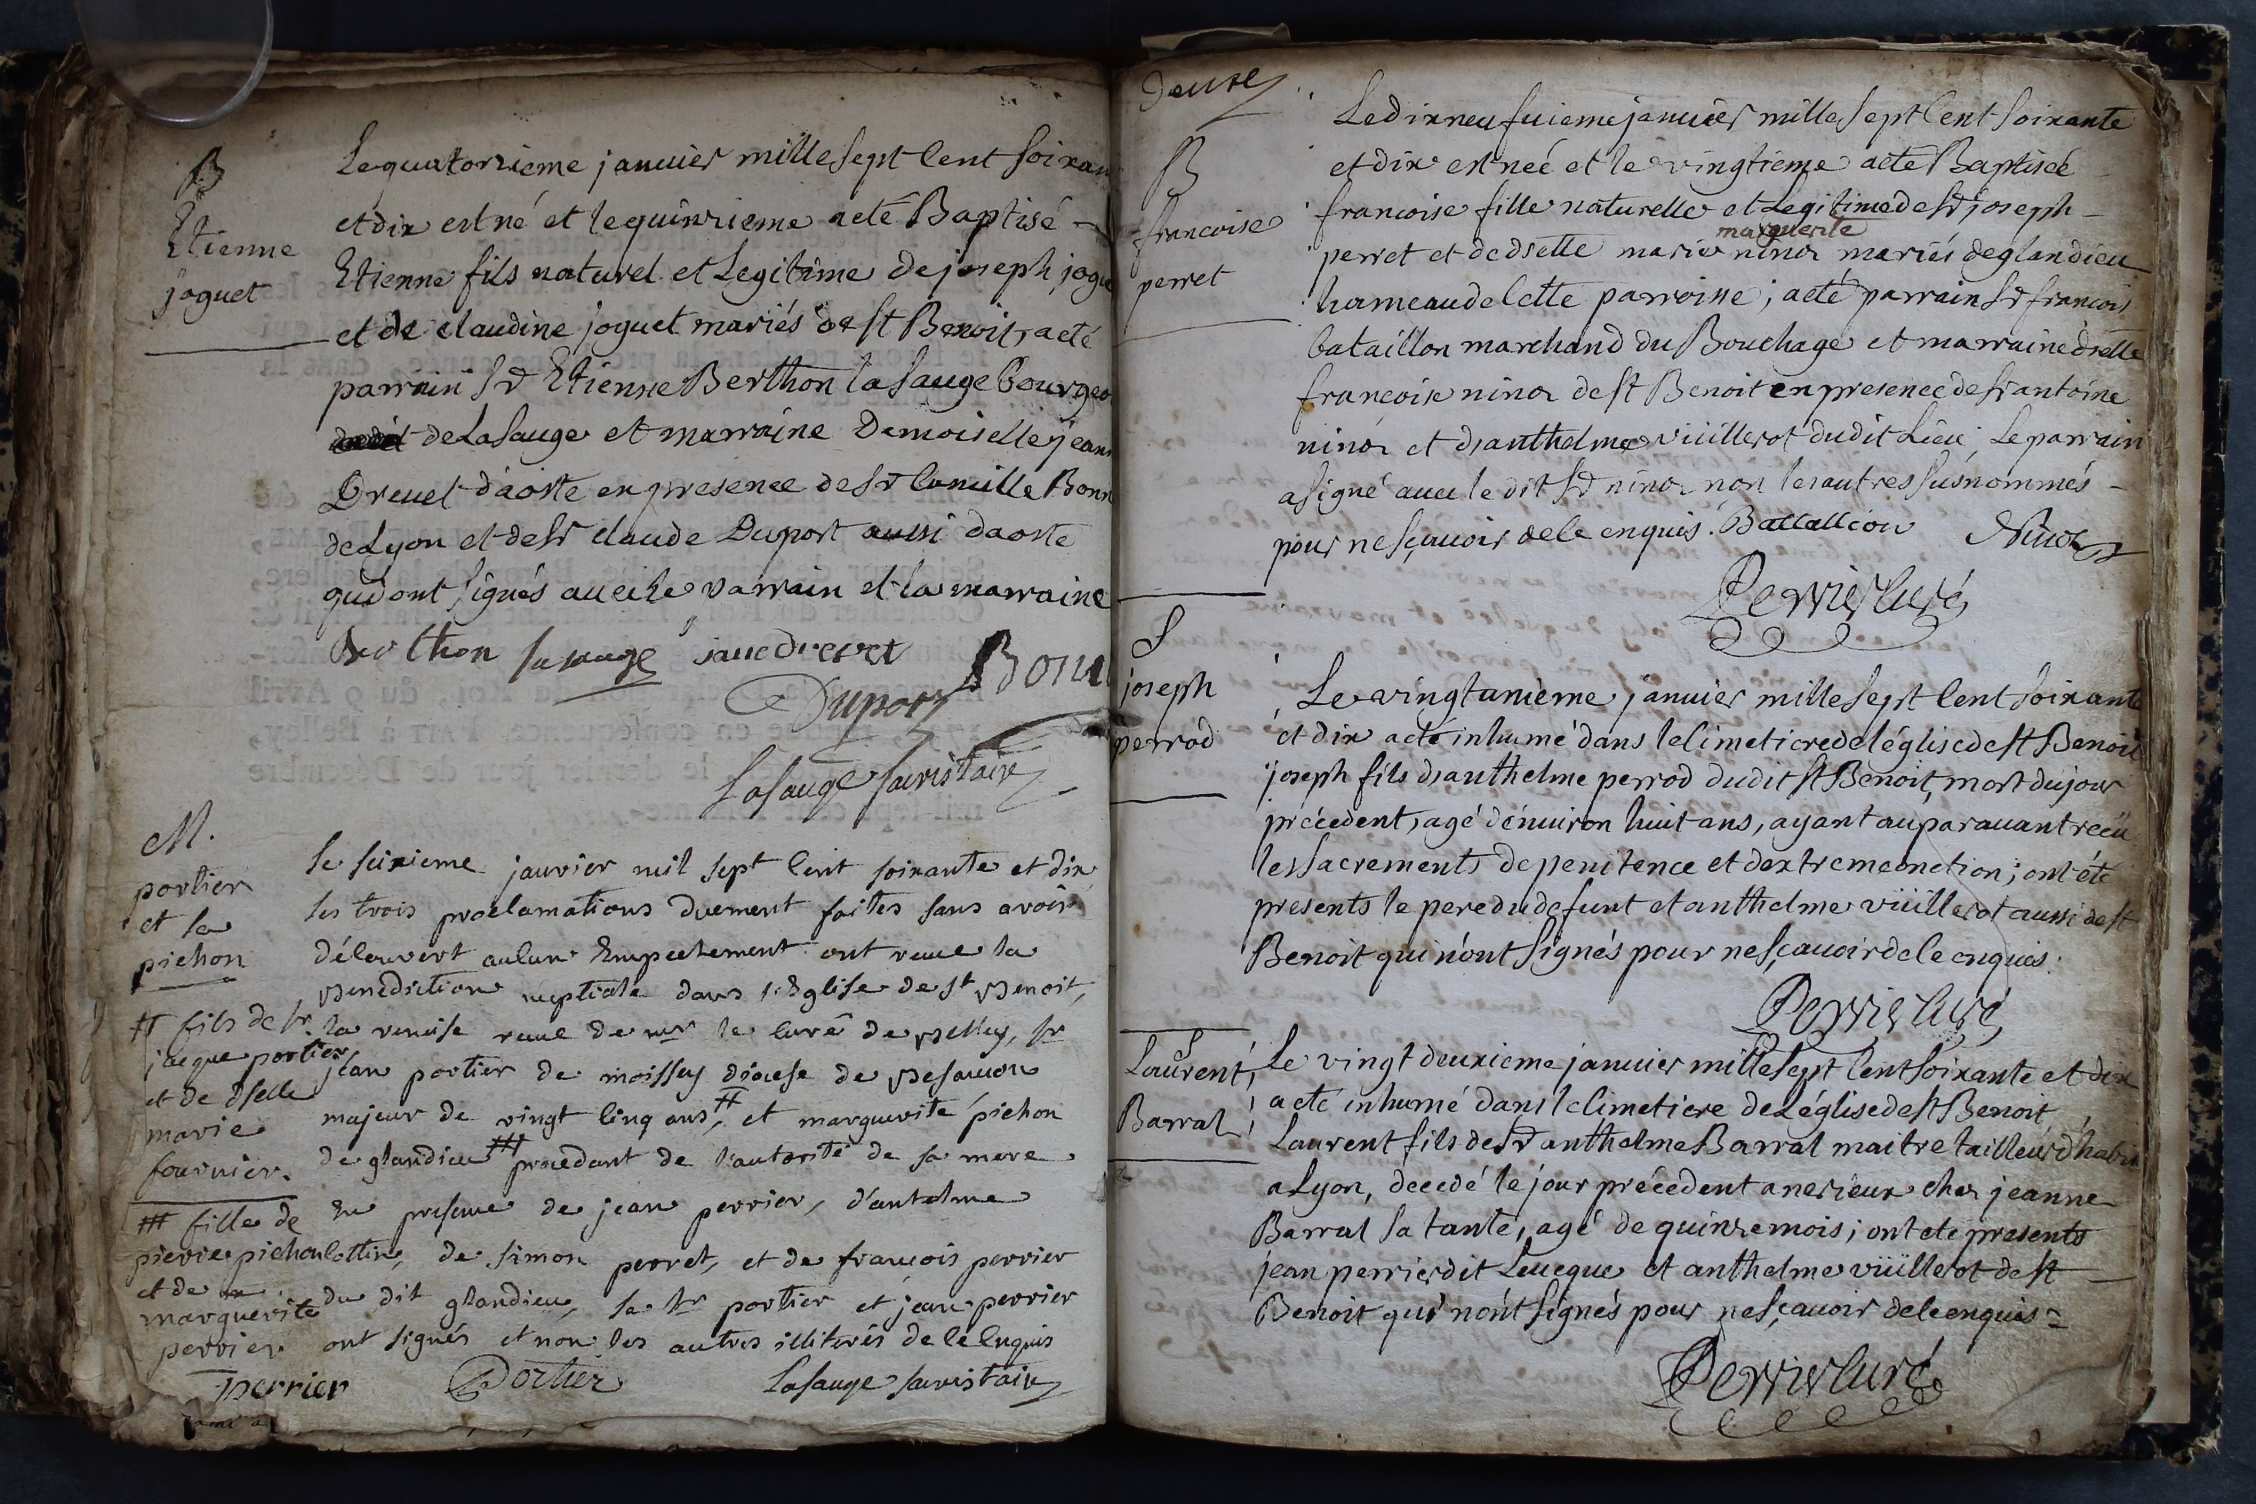 B
Etienne
joguet
Le quatorzieme januier mille sept Cent soixan
et dix est né et le quinzieme acté Baptisé
Etienne fils naturel et Legitime de joseph jogue
et de claudine joguet mariés de st Benoit, acté
parrain sr Etienne Berthon la sauge bourgeo
de La sauge et marraine Demoiselle jeann
Dreuet d'aoste en presence de sr Camille Bonn
de Lyon et de sr claude Duport aussi daoste
qui ont signés auec le parrain et la marraine
Berthon lasauge jane dreuet Bonn
Duport
Lasauge sacristain
M.
portier
et la
pichon
Le seizieme janvier mil sept Cent soixante et dix
les trois proclamations duement faites sans avoir
découvert aucun Empechement ont recue la
Benediction nuptiale dans l'Eglise de st Benoit,
la remise recue de mr le curé de Belley, sr
jean portier de moissey diocese de Besancon
majeur de vingt Cinq ans, # et marguerite pichon
de glandieu ## procedant de l'autorité de sa mere
En presence de jean perrier, d'antelme
Cottin, de simon perret, et de françois perrier
du dit glandieu, le sr portier et jean perrier
ont signés et non les autres illiterés de ce Enquis
# fils de sr
jacque portier
et de dselle
marie
fournier.
## fille de
pierre pichon
et de
marguerite
perrier
perrier Portier Lasauge sacristain
deuxe
B
francoise
perret
Le dixneufuieme januier mille sept Cent soixante
et dix est neé et le vingtieme acte Baptiseé
francoise fille naturelle et Legitime de sr joseph
marguerite
perret et de dselle marie ninoz mariés de glandieu
hameau de Cette parroisse; acté parrain sr francois
bataillon marchand du Bouchage et marraine dselle
francoise ninoz de st Benoit en presence de sr antoine
ninoz et d'anthelme viüillerot dudit Lieu; Le parrain
a signé auec le dit sr ninoz non les autres susnommés
pour ne sçauoir de ce enquis. Battallion Ninoz
Perrier Curé
S
joseph
perrod
Le vingtunieme januier mille sept Cent soixante
et dix acté inhumé dans le Cimetiere de l'église de st Benoit
joseph fils d'anthelme perrod dudit st Benoit, mort du jour
précédent, agé d'enuiron huit ans, ayant auparauant recu
les sacrements de penitence et dextremeonction; ont été
presents le pere du defunt et anthelme viüillerot aussi de st
Benoit qui n'ont signés pour ne sçauoir de ce enquis.
Perrier Curé
S
Laurent
Barral
Le vingt deuxieme januier mille sept Cent soixante et dix
acté inhumé dans le Cimetiere de L'église de st Benoit
Laurent fils de sr anthelme Barral maitre tailleur d'habit
a Lyon, decedé le jour précedent a nerieux chez jeanne
Barral sa tante, agé de quinze mois; ont eté presents
jean perrier dit Leueque et anthelme viüillerot de st
Benoit qui n'ont signés pour ne sçauoir de ce enquis
Perrier Curé